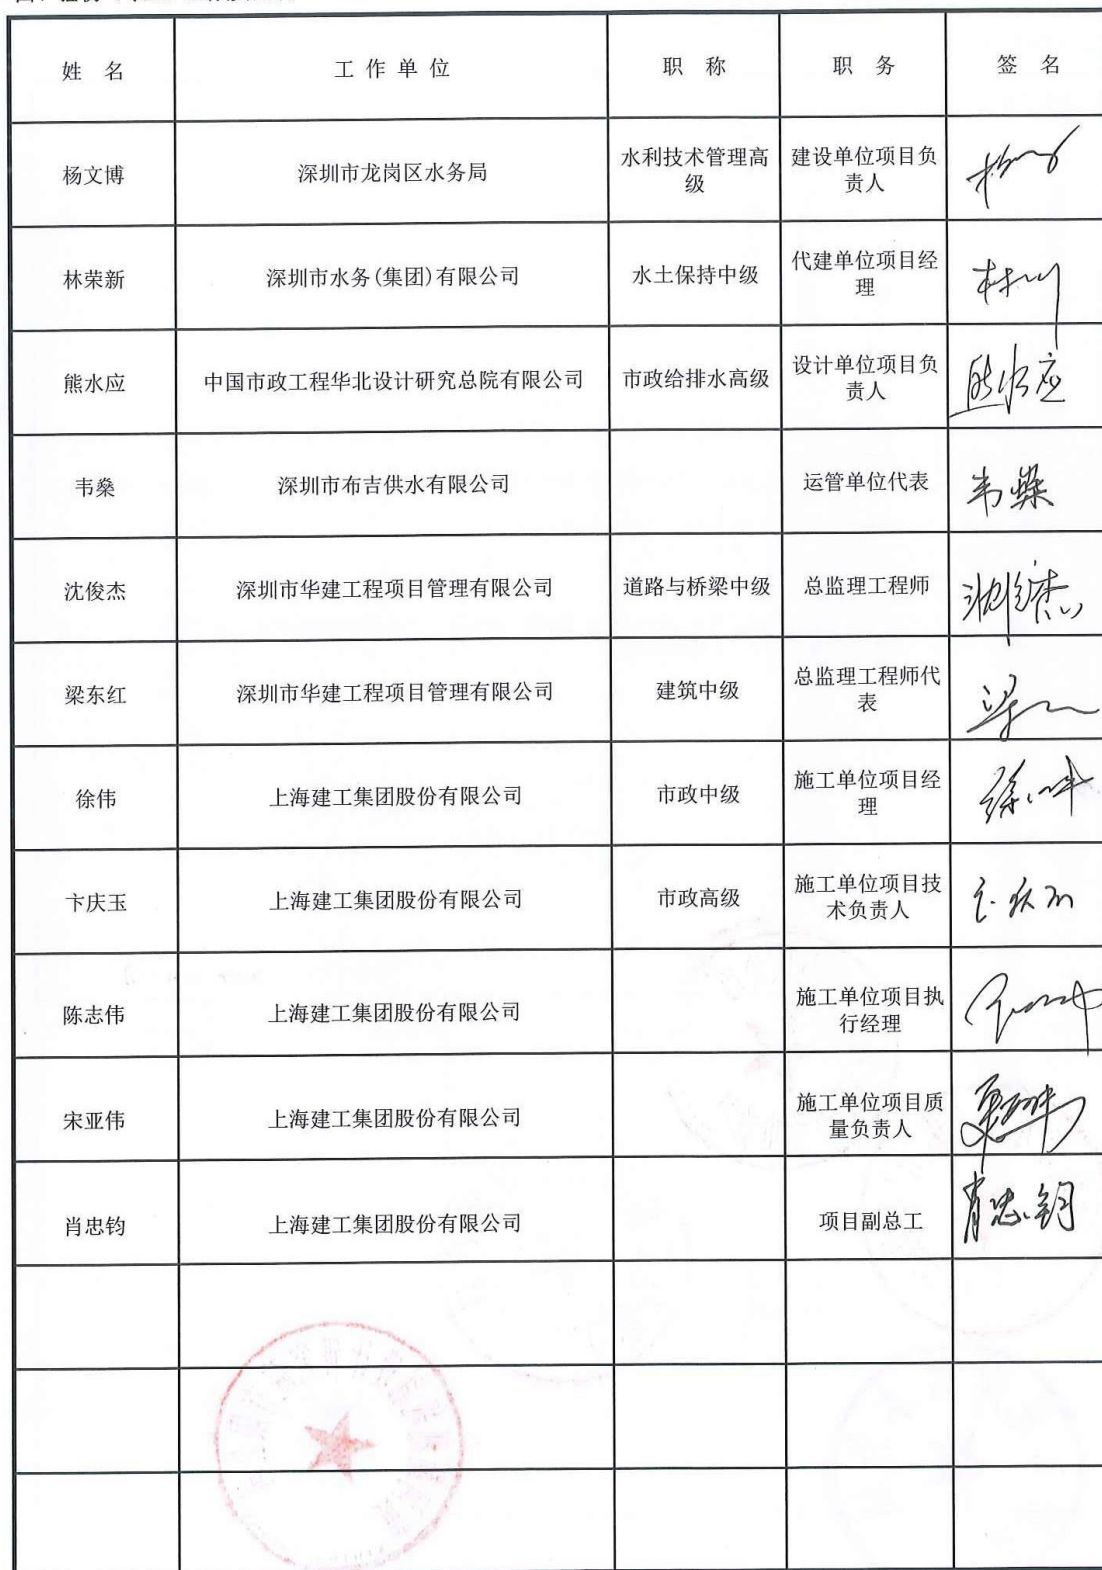 姓 名 工作单位 职 称 职 务 签 名
杨文博 深圳市龙岗区水务局 水利技术管理高 建设单位项目负
级 责人
林荣新 深圳市水务(集团)有限公司 水土保持中级 代建单位项目经
理
熊水应 中国市政工程华北设计研究总院有限公司 市政给排水高级 设计单位项目负 熊水应
责人
韦燊 深圳市布吉供水有限公司 运管单位代表 韦燊
沈俊杰 深圳市华建工程项目管理有限公司 道路与桥梁中级 总监理工程师 沈俊杰
梁东红 深圳市华建工程项目管理有限公司 建筑中级 总监理工程师代
表
徐伟 上海建工集团股份有限公司 市政中级 施工单位项目经 徐伟
理
卞庆玉 上海建工集团股份有限公司 市政高级 施工单位项目技 卞庆玉
术负责人
陈志伟 上海建工集团股份有限公司 施工单位项目执
行经理
宋亚伟 上海建工集团股份有限公司 施工单位项目质
量负责人
肖忠钧 上海建工集团股份有限公司 项目副总工 肖忠钧